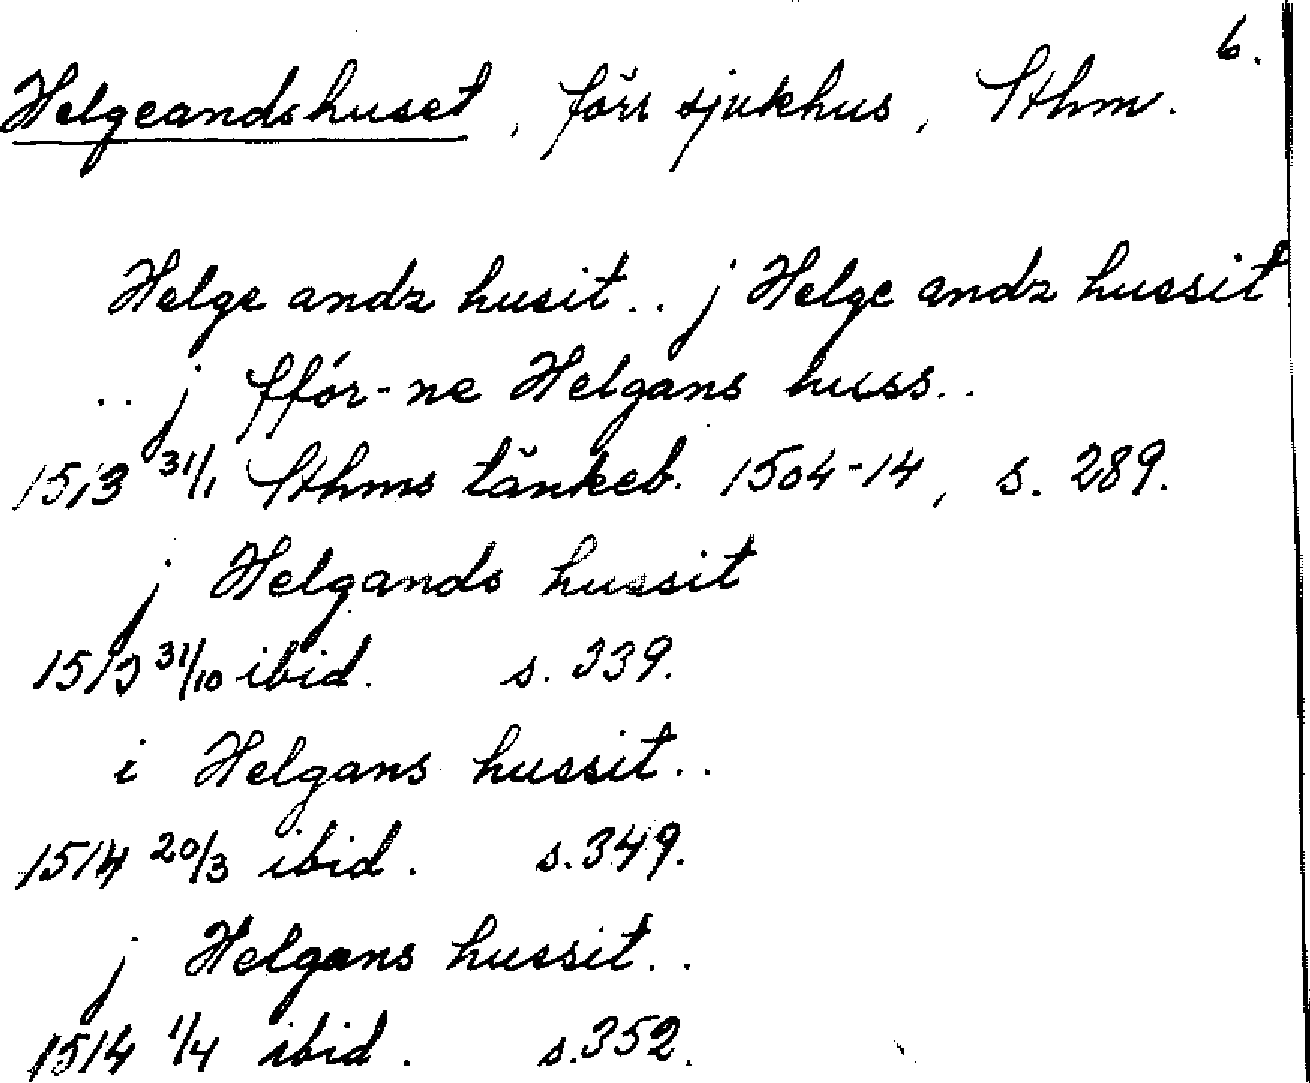 6.
Helgeandshuset, förr sjukhus, Sthm.
Helge andz husit.. j Helge andz hussit
.. j fför-ne Helgans huss..
1513 31/1 Sthms tänkeb. 1504-14, s. 289.
j Helgands hussit
1513 31/10 ibid. s. 339.
i Helgans hussit..
1514 20/3 ibid. s. 349.
j Helgans hussit..
1514 1/4 ibid. s. 352.